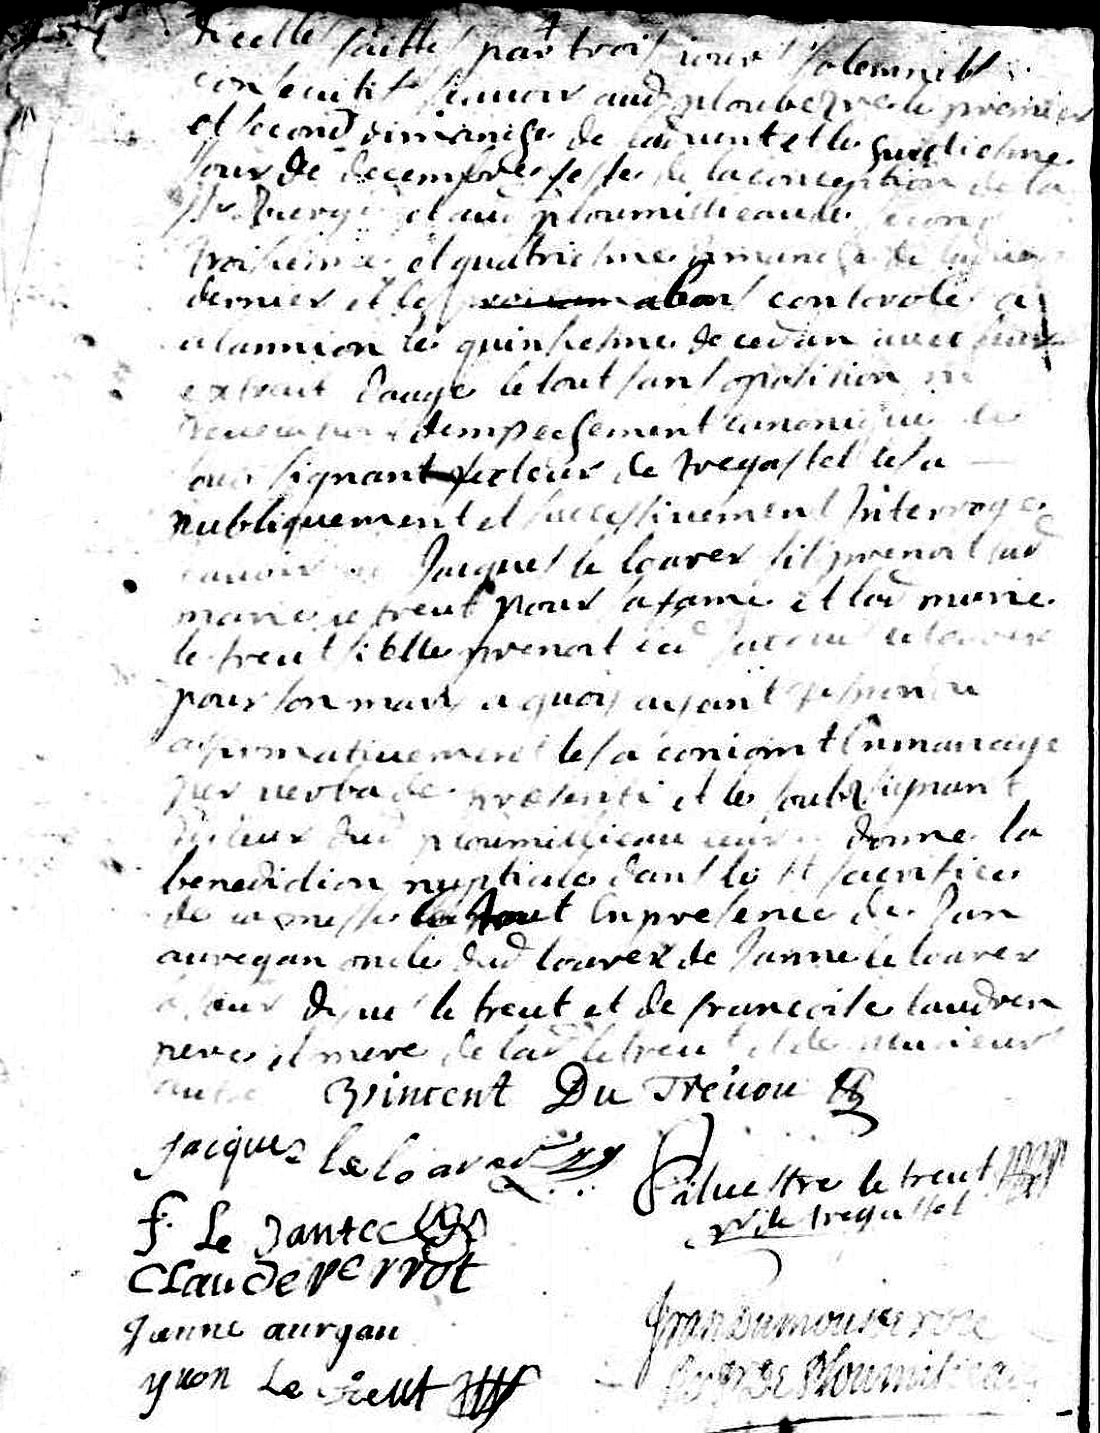 dicelles faittes par trois jours solemnels
consecutifs scavoir aud ploubezre le premier
et second dimanche de ladvent et le huictiesme
jour de decembre feste de la conception de la
Ste Vierge et aud ploumillieau le second
troisiesme et quatriesme dimanche de ladvent
dernier et les bans controlés a
a lannion le quinsiesme de ce dan avec leur
extrait dauge le tout sans oposition ni
dempechement canonique le
sous signant recteur de tregastel les a
publiquement et successivement Interrogé
scavoir Jacques le loarer sil prenoit lad
marie le treut pour sa fame et lad marie
le treut si elle prenoit led Jacques le loarer
pour son mary a quoy ayant respondu
afirmativement les a conioint En mariage
per verba de presenti et le soubsignant
recteur dud ploumillieau leur donne la
benediction nuptiale dans le st sacrifice
de la messe le tout En presence de Jan
auregan oncle dud loarer de Janne le loarer
sa seur de le treut et de francoise laudren
pere et mere de lad le treut et de plusieurs
autre Vincent Du Trevou
Jacques le loarer
Silvestre le treut
rr de tregastel
f. Le Dantec
Claude perrot
Janne aurgan
yvon Le treut
de Ploumilleau